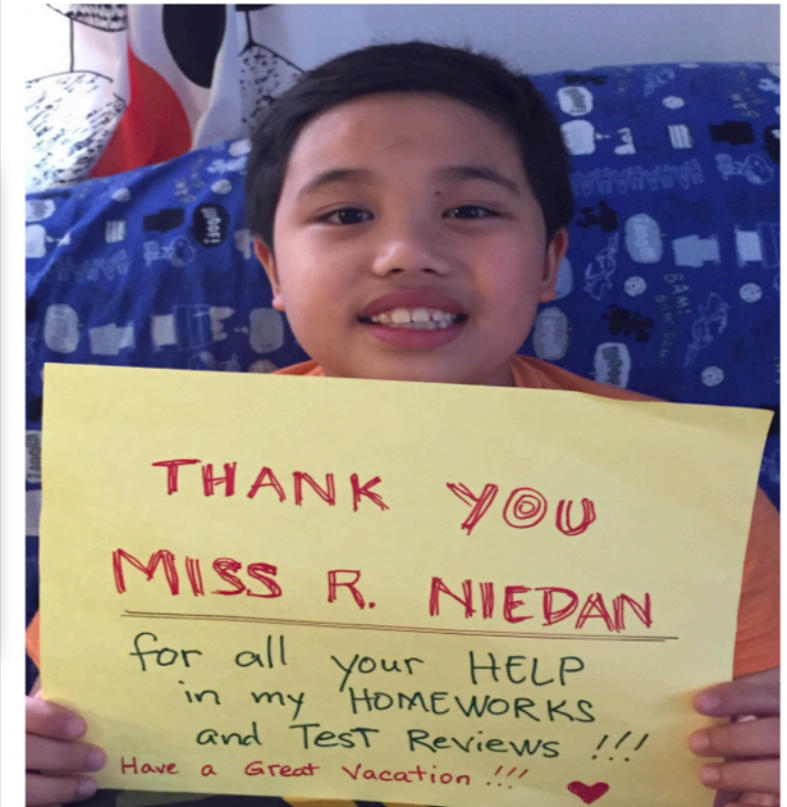 THANK YOU
MISS R. NIEDAN
for all your HELP
in my HOMEWORKS
and TEST REVIEWS !!!
Have a Great Vacation !!!
WOOF!
BAM!